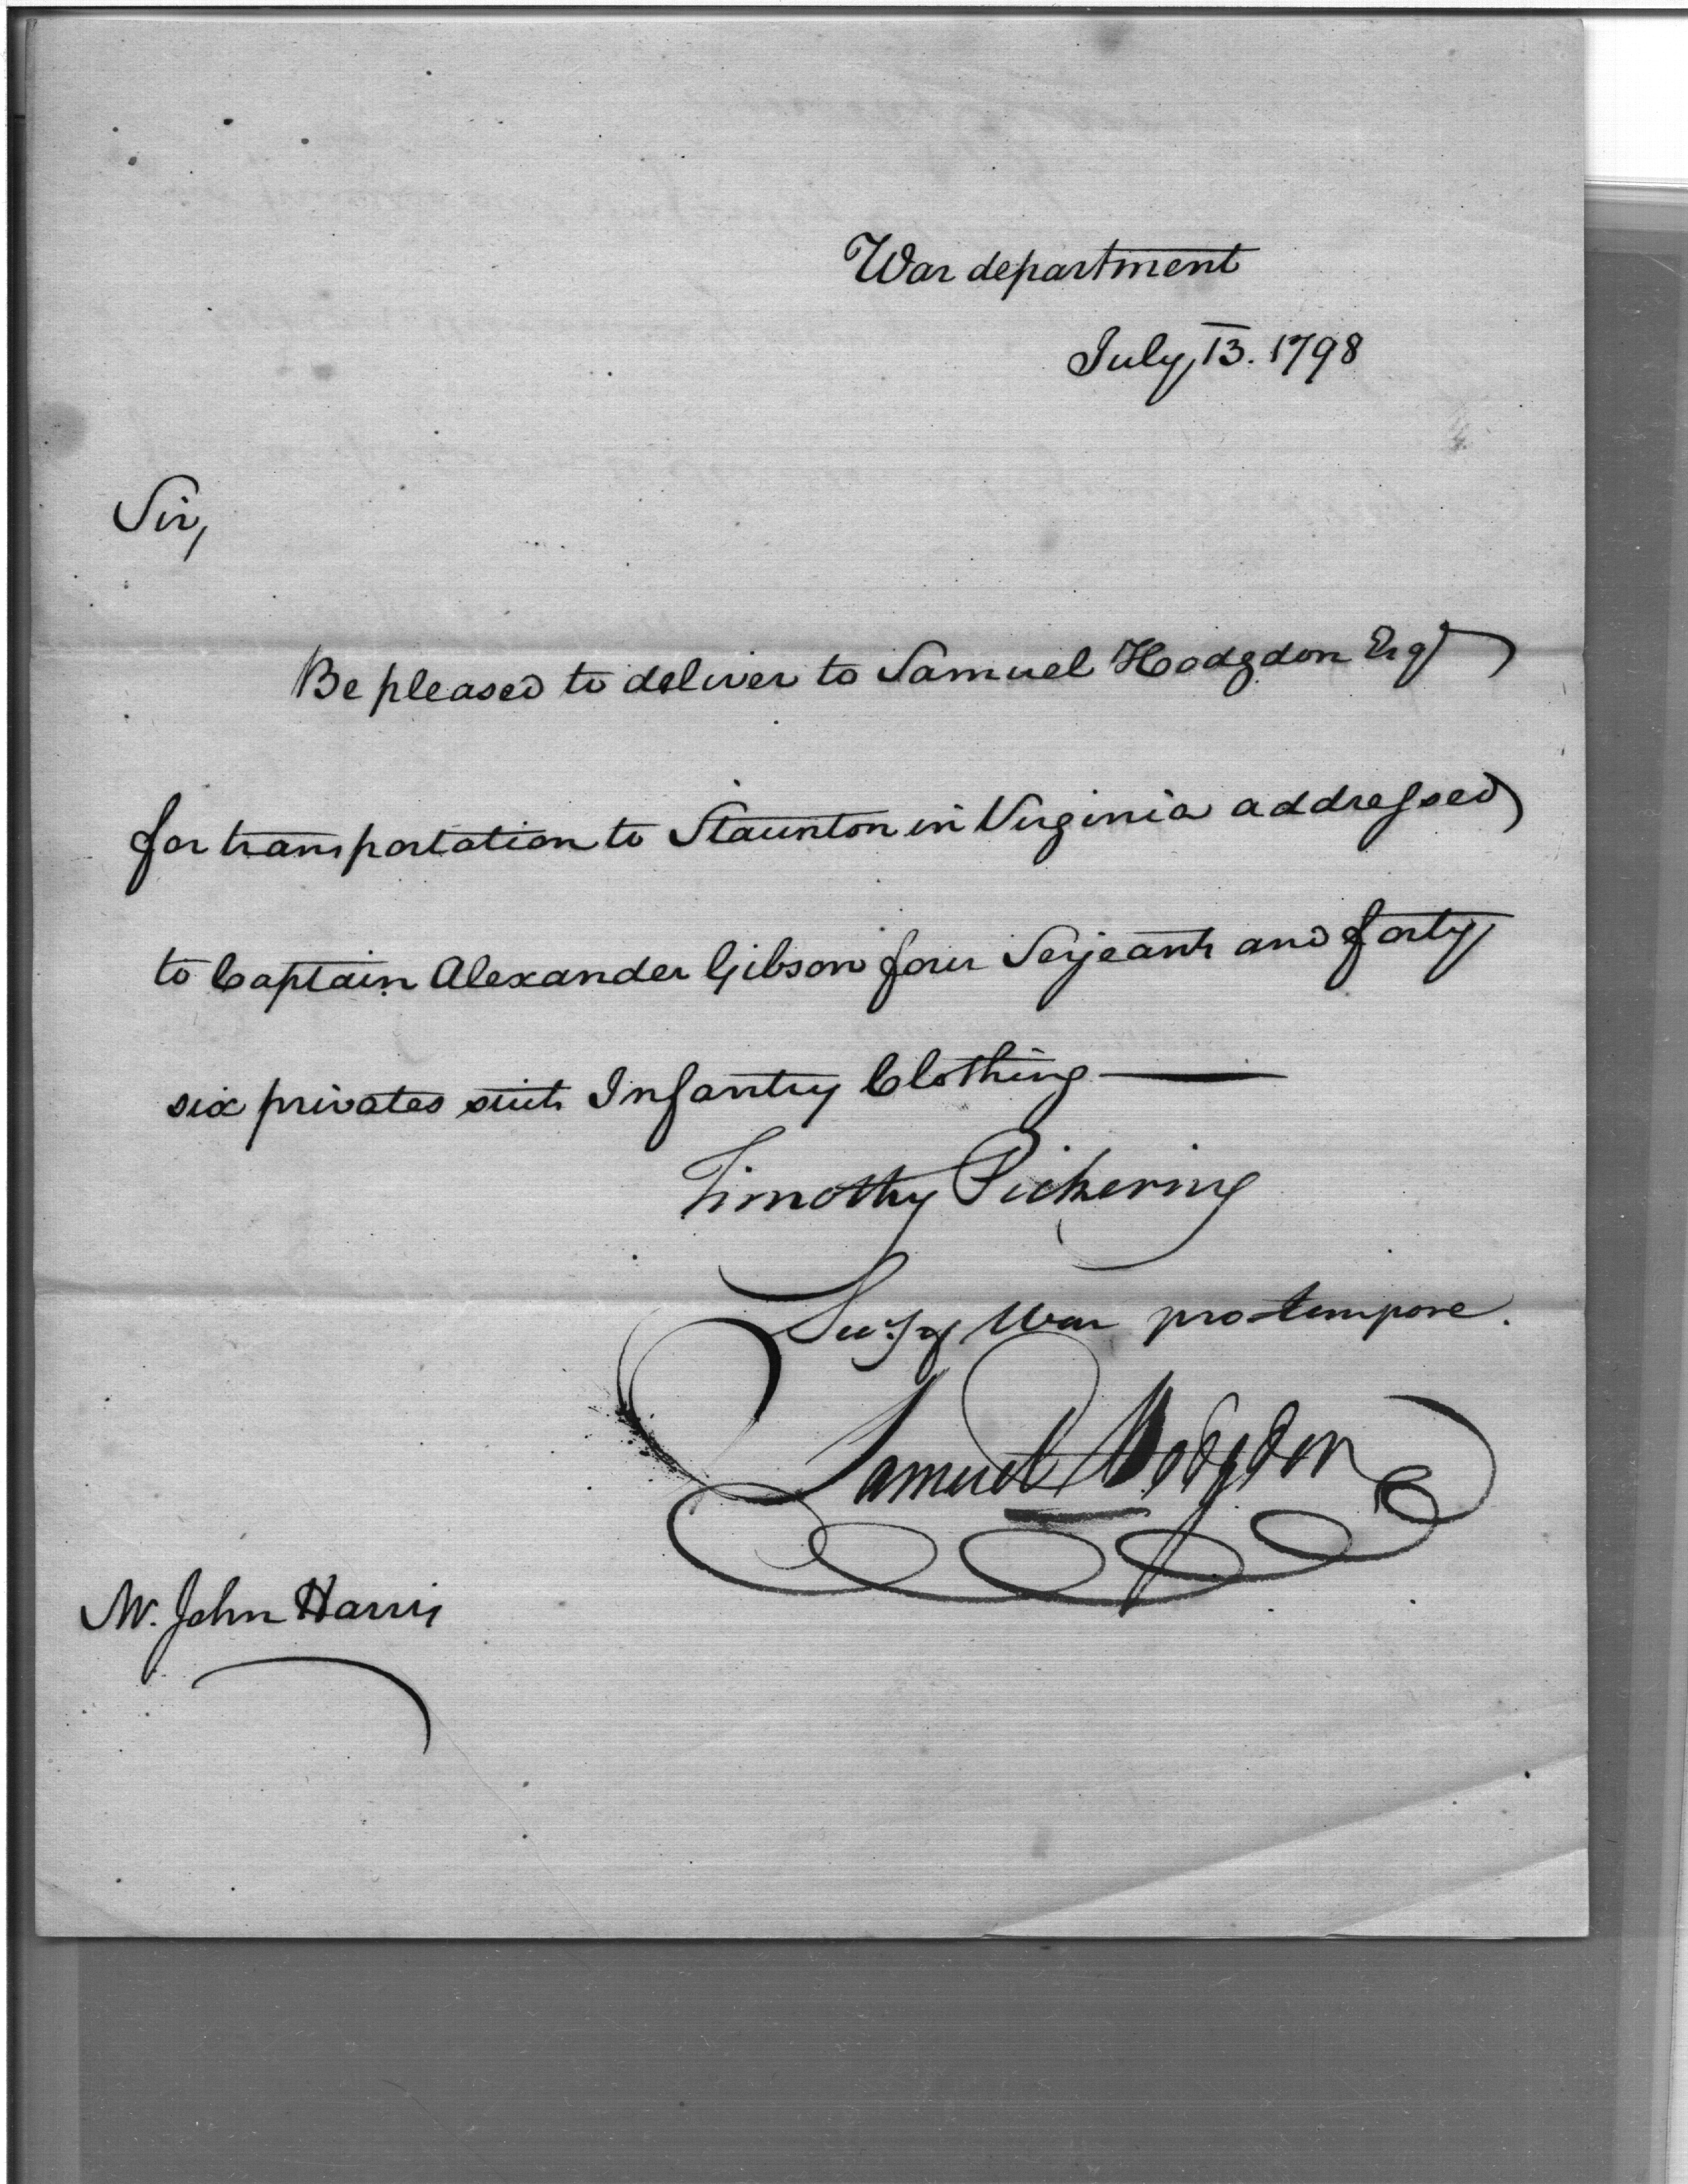 War department
July 13. 1798
Sir,
Be pleased to deliver to Samuel Hodgdon Esqr
for transportation to Staunton in Virginia addressed
to Captain Alexander Gibson four Serjeants and forty
six privates suits Infantry Clothing
Timothy Pickering
Secy. of War pro-tempore.
Samuel Hodgdon
Mr. John Harris